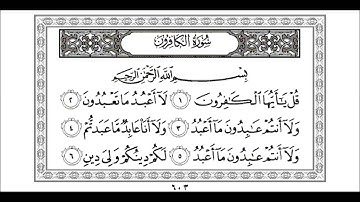 سُورَةُ الْكَافِرُونَ
بِسْمِ اللَّهِ الرَّحْمَٰنِ الرَّحِيمِ
قُلْ يَٰٓأَيُّهَا ٱلْكَٰفِرُونَ ١ لَآ أَعْبُدُ مَا تَعْبُدُونَ ٢
وَلَآ أَنتُمْ عَٰبِدُونَ مَآ أَعْبُدُ ٣ وَلَآ أَنَا۠ عَابِدٌ مَّا عَبَدتُّمْ ٤
وَلَآ أَنتُمْ عَٰبِدُونَ مَآ أَعْبُدُ ٥ لَكُمْ دِينُكُمْ وَلِىَ دِينِ ٦
٦٠٣